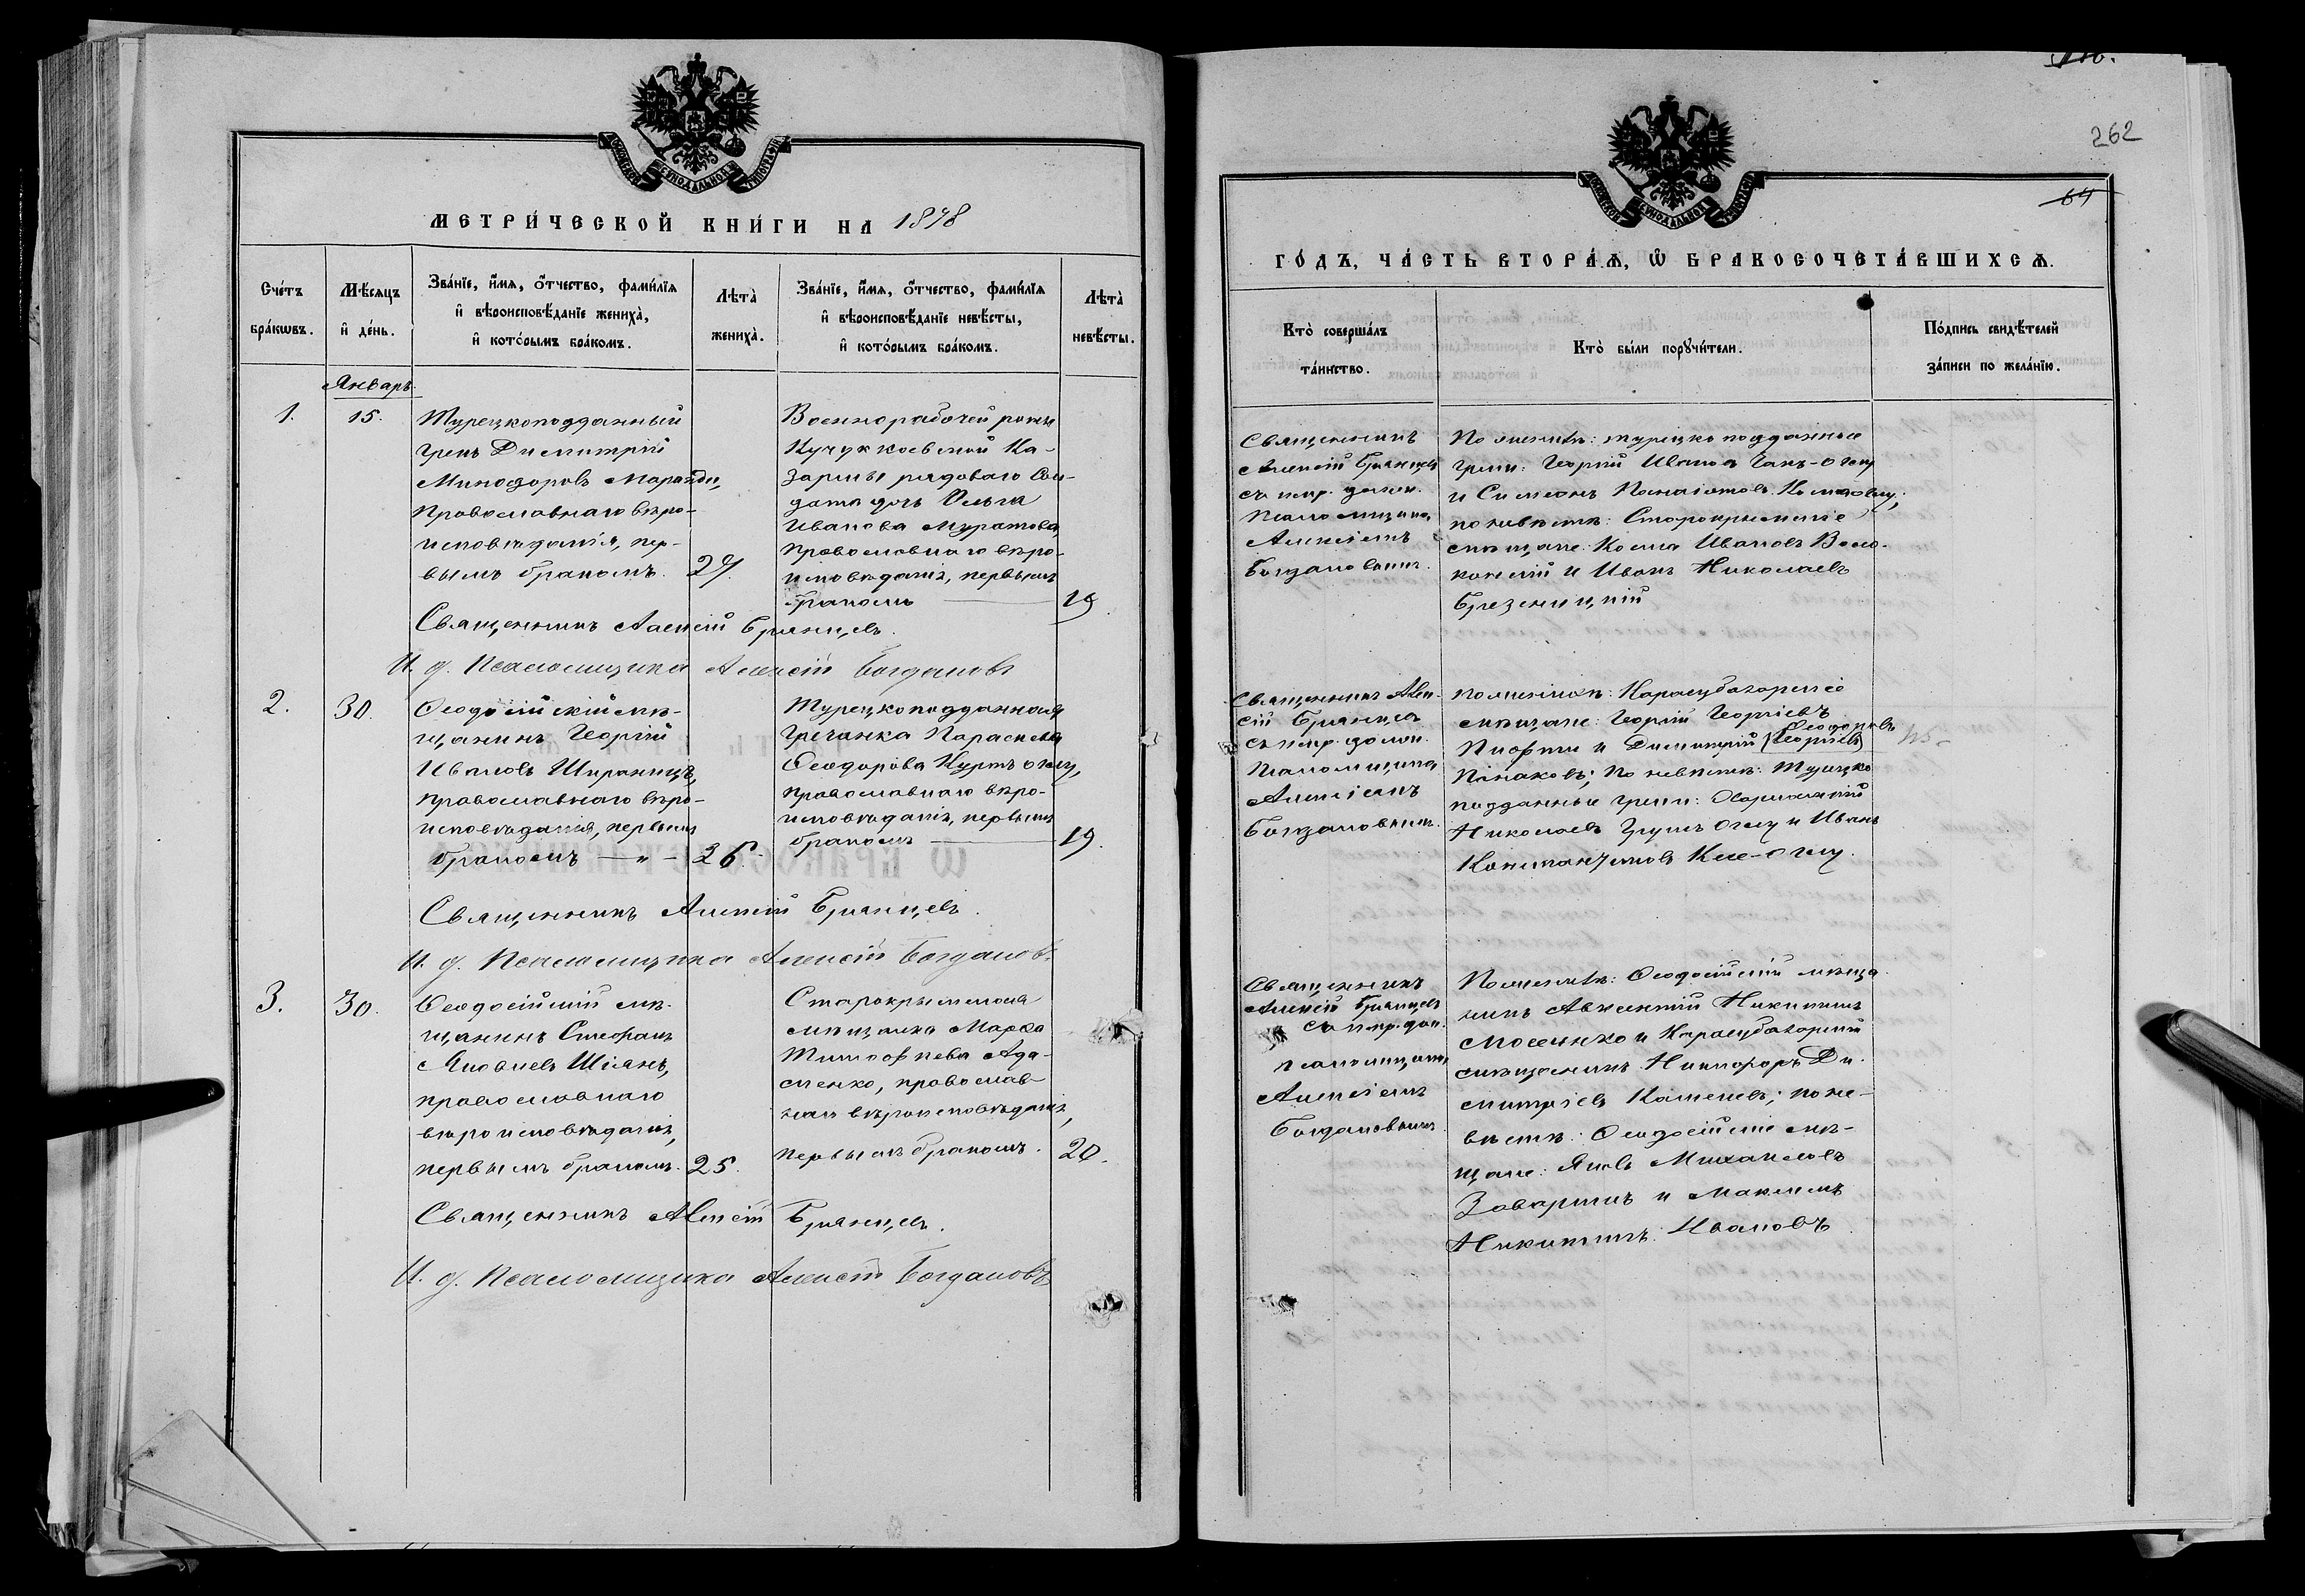 МОСКОВСКОЙ СѴНОДАЛЬНОЙ ТИПОГРАФІИ
МЕТРИ́ЧЕСКОЙ КНИ́ГИ НА 1878
Сче́тъ бра́кωвъ.
Мѣ́сяцъ и҆ де́нь.
Зва́нїе, и҆́мя, ѻ҆́тчество, фами́лїя
и҆ вѣроисповѣ́данїе жениха̀,
и҆ кото́рымъ бра́комъ.
Лѣта̀ жениха̀.
Зва́нїе, и҆́мя, ѻ҆́тчество, фами́лїя
и҆ вѣроисповѣ́данїе невѣ́сты,
и҆ кото́рымъ бра́комъ.
Лѣта̀ невѣ́сты.
Январь
1.
15.
Турецкоподданный
грекъ Димитрій
Минодоровъ
православнаго вѣро-
исповѣданія, пер-
вымъ бракомъ.
27.
Военнорабочей роты
Кучук коевской Ка-
зармы рядоваго Сол-
дата дочь Ольга
Иванова Муратова,
православнаго вѣро-
исповѣданія, первымъ
бракомъ
19.
Священникъ Алексій Брянцевъ.
И. д. Псаломщика Алексій Богдановъ
2.
30.
Ѳеодосійскій мѣ-
щанинъ Георгій
Ивановъ
православнаго вѣро-
исповѣданія, первымъ
бракомъ — „ —
26.
Турецкоподданная
Гречанка Параскева
Ѳеодорова Куртъ оглу,
православнаго вѣро-
исповѣданія, первымъ
бракомъ
19.
Священникъ Алексій Брянцевъ.
И. д. Псаломщика Алексій Богдановъ.
3.
30.
Ѳеодосійскій мѣ-
щанинъ Стефанъ
Яковлевъ Шіянъ,
православнаго
вѣроисповѣданія,
первымъ бракомъ.
25.
Старокрымская
мѣщанка Марѳа
Тимофѣева Ада-
менко, православ-
наго вѣроисповѣданія,
первымъ бракомъ.
20.
Священникъ Алексій Брянцевъ.
И. д. Псаломщика Алексій Богдановъ
262
64
МОСКОВСКОЙ СѴНОДАЛЬНОЙ ТИПОГРАФІИ
ГО́ДЪ, ЧА́СТЬ ВТОРА́Я, Ѽ БРАКОСОЧЕТА́ВШИХСЯ.
Кто̀ соверша́лъ та́инство.
Кто̀ бы́ли порꙋчи́тели.
По́дпись свидѣ́телей за́писи по жела́нїю.
Священникъ
Алексій Брянцевъ
съ испр. должн.
Псаломщика
Алексіемъ
Богдановымъ.
По женихѣ: турецко подданные
греки: Георгій Ивановъ -оглу
и Симеонъ Панаіотовъ
по невѣстѣ: Старокрымскіе
мѣщане: Козма Ивановъ
и Иванъ Николаевъ
Брезницкій
Священникъ Алек-
сій Брянцевъ
съ испр. должн.
Псаломщика
Алексіемъ
Богдановымъ.
По женихѣ: Карасубазарскіе
мѣщане: Георгій Георгіевъ
и Димитрій (Георгіевъ) Ѳеодоровъ
по невѣстѣ: Турецко
подданные греки:
Николаевъ оглу и Иванъ
Константиновъ -оглу.
Священникъ
Алексій Брянцевъ
съ испр. дол.
псаломщика
Алексіемъ
Богдановымъ
По женихѣ: Ѳеодосійскій мѣща-
нинъ Авксентій Никитинъ
и Карасубазарскій
мѣщанинъ Никифоръ Ди-
митріевъ по не-
вѣстѣ: Ѳеодосійскіе мѣ-
щане: Яковъ Михайловъ
и Максимъ
Никитинъ Ивановъ